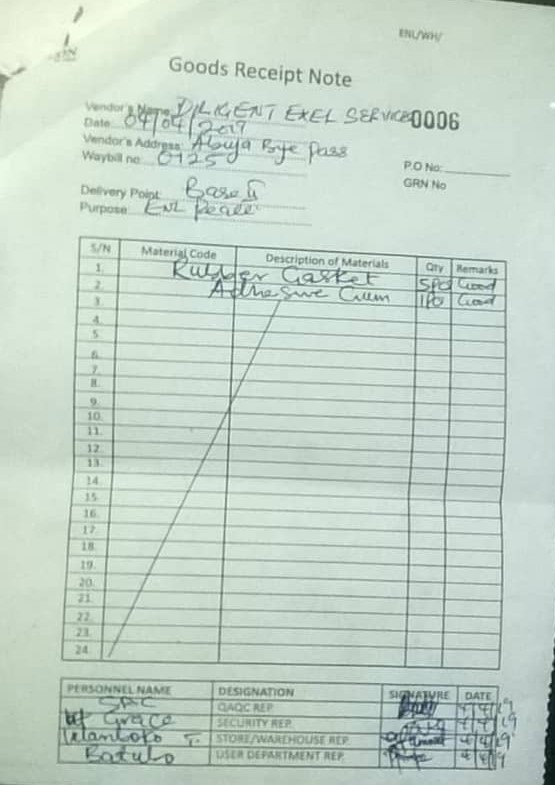 ENL/WH/
Goods Receipt Note
Vendor's Name DILIGENT EXEL SERVICE 0006
Date 04/04/2019
Vendor's Address Abuja Bye Pass
Waybill no 0125
P.O No:
GRN No
Delivery Point: Base II
Purpose ENL
S/N Material Code Description of Materials Qty Remarks
1. Rubber Gasket 5PCS Good
2. Adhesive Gum 1PC Good
3.
4.
5.
6.
7.
8.
9.
10.
11.
12.
13.
14.
15.
16.
17.
18.
19.
20.
21.
22.
23.
24.
PERSONNEL NAME DESIGNATION SIGNATURE DATE
QAQC REP. 4/4/19
Grace SECURITY REP. 4/4/19
STORE/WAREHOUSE REP. 4/4/19
USER DEPARTMENT REP. 4/4/19